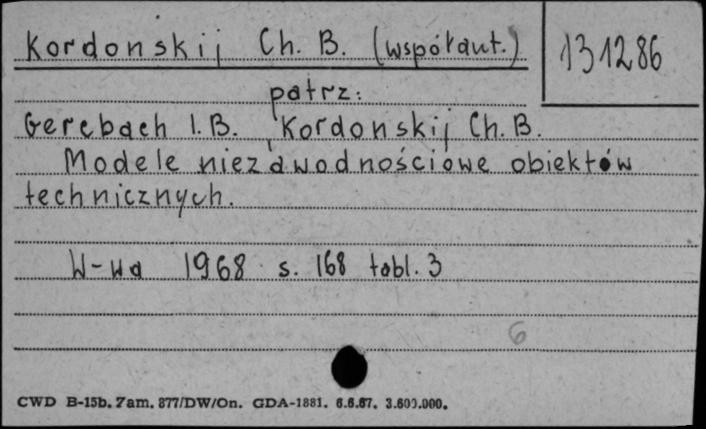 Kordonskij Ch. B. (współaut.)
131286
patrz:
Gercbach I. B., Kordonskij Ch. B.
Modele niezawodnościowe obiektów
technicznych.
W-wa 1968 s. 168 tabl. 3
6
CWD B-15b. Zam. 877/DW/On. GDA-1881. 6.6.67. 3.600.000.